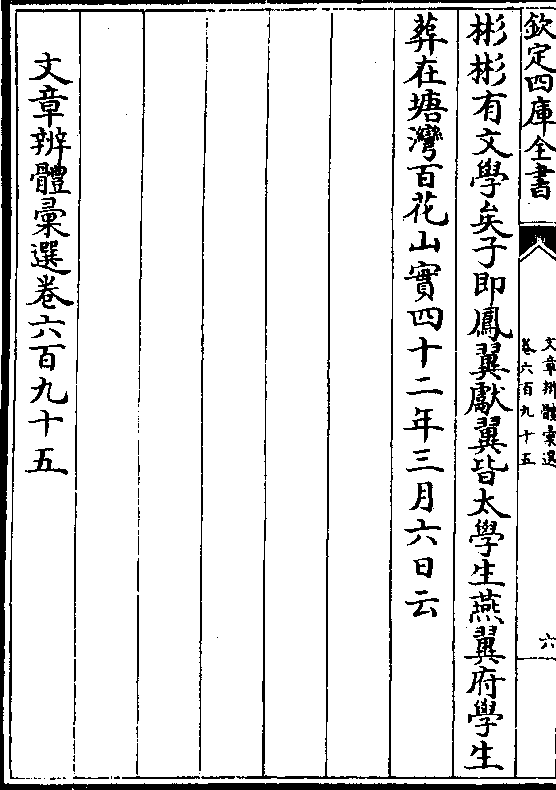 欽定四庫全書
文章辨體彙選
卷六百九十五
六
彬彬有文學矣子即鳳翼獻翼皆太學生燕翼府學生
葬在塘灣百花山實四十二年三月六日云
文章辨體彙選卷六百九十五